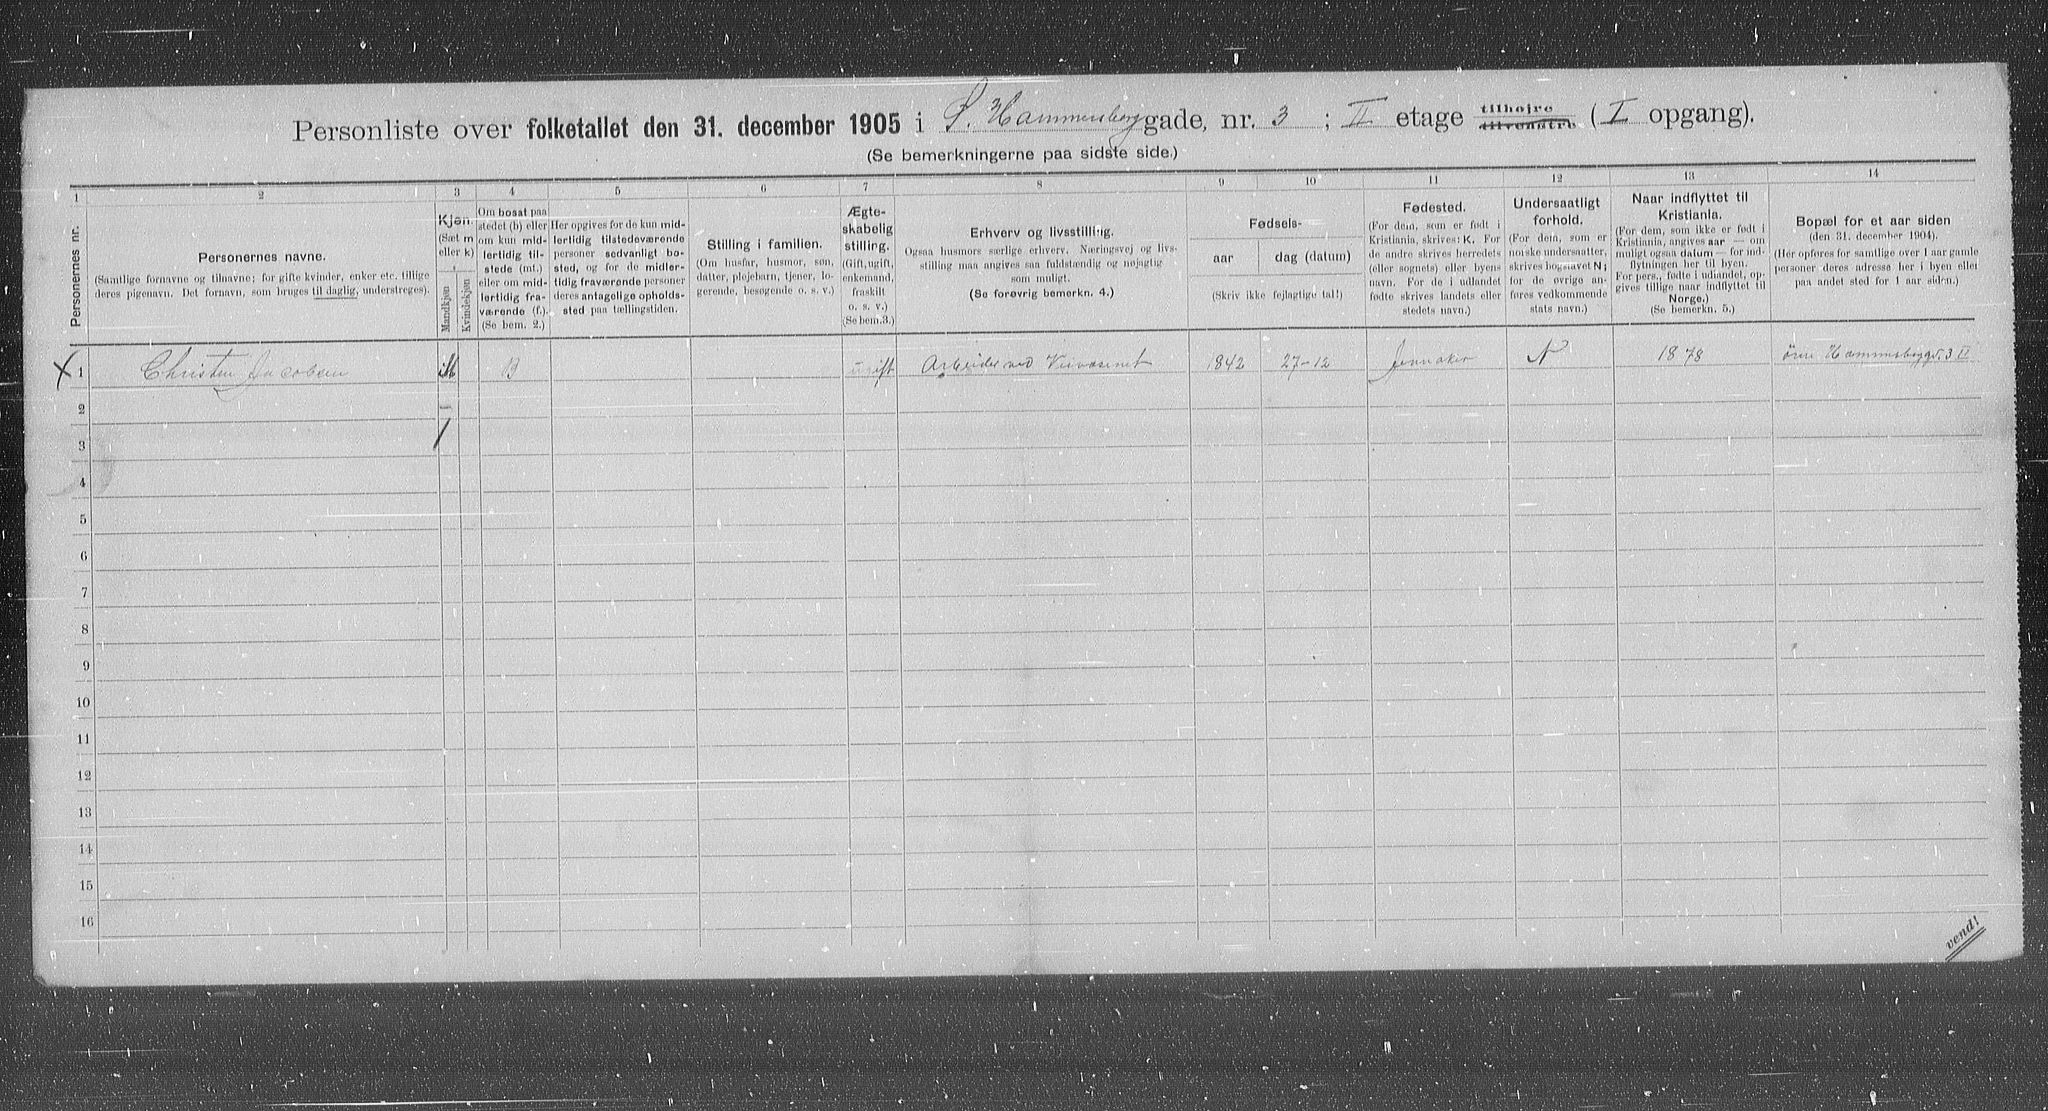 Personliste over folketallet den 31. december 1905 i Ø. Hammersborggade, nr. 3; II etage tilhøjre tilvenstre (I opgang).
(Se bemerkningerne paa sidste side.)
1 2 3 4 5 6 7 8 9 10 11 12 13 14
Personernes nr.
Personernes navne.
(Samtlige fornavne og tilnavne; for gifte kvinder, enker etc. tillige
deres pigenavn. Det fornavn, som bruges til daglig, understreges).
Kjøn.
(Sæt m
eller k)
Mandkjøn
Kvindekjøn
Om bosat paa
stedet (b) eller
om kun mid-
lertidig til-
stede (mt.)
eller om mid-
lertidig fra-
værende (f.).
(Se bem. 2.)
Her opgives for de kun mid-
lertidig tilstedeværende
personer sedvanligt bo-
sted, og for de midler-
tidig fraværende personer
deres antagelige opholds-
sted paa tællingstiden.
Stilling i familien.
(Om husfar, husmor, søn,
datter, plejebarn, tjener, lo-
gerende, besøgende o. s. v.)
Ægte-
skabelig
stilling.
(Gift, ugift,
enkemand,
fraskilt
o. s. v.)
(Se bem. 3.)
Erhverv og livsstilling.
Ogsaa husmors særlige erhverv. Næringsvej og livs-
stilling maa angives saa fuldstændig og nøjagtig
som muligt.
(Se forøvrig bemerkn. 4.)
Fødsels-
aar
dag (datum)
(Skriv ikke fejlagtige tal!)
Fødested.
(For dem, som er født i
Kristiania, skrives: K. For
de andre skrives herredets
(eller sognets) eller byens
navn. For de i udlandet
fødte skrives landets eller
stedets navn.)
Undersaatligt
forhold.
(For dem, som er
norske undersaatter,
skrives bogstavet N;
for de øvrige an-
føres vedkommende
stats navn.)
Naar indflyttet til
Kristiania.
(For dem, som ikke er født i
Kristiania, angives aar — om
muligt ogsaa datum — for ind-
flytningen her til byen.
For pers., fødte i udlandet, op-
gives tillige naar indflyttet til
Norge.)
(Se bemerkn. 5.)
Bopæl for et aar siden
(den 31. december 1904).
(Her opføres for samtlige over 1 aar gamle
personer deres adresse her i byen eller
paa andet sted for 1 aar siden.)
X 1 Christen Jacobsen M B ugift Arbeider ved Veivæsenet 1842 27-12 Jevnaker N 1878 øvre Hammersborggd. 3 II
2
3
4
5
6
7
8
9
10
11
12
13
14
15
16
vend!